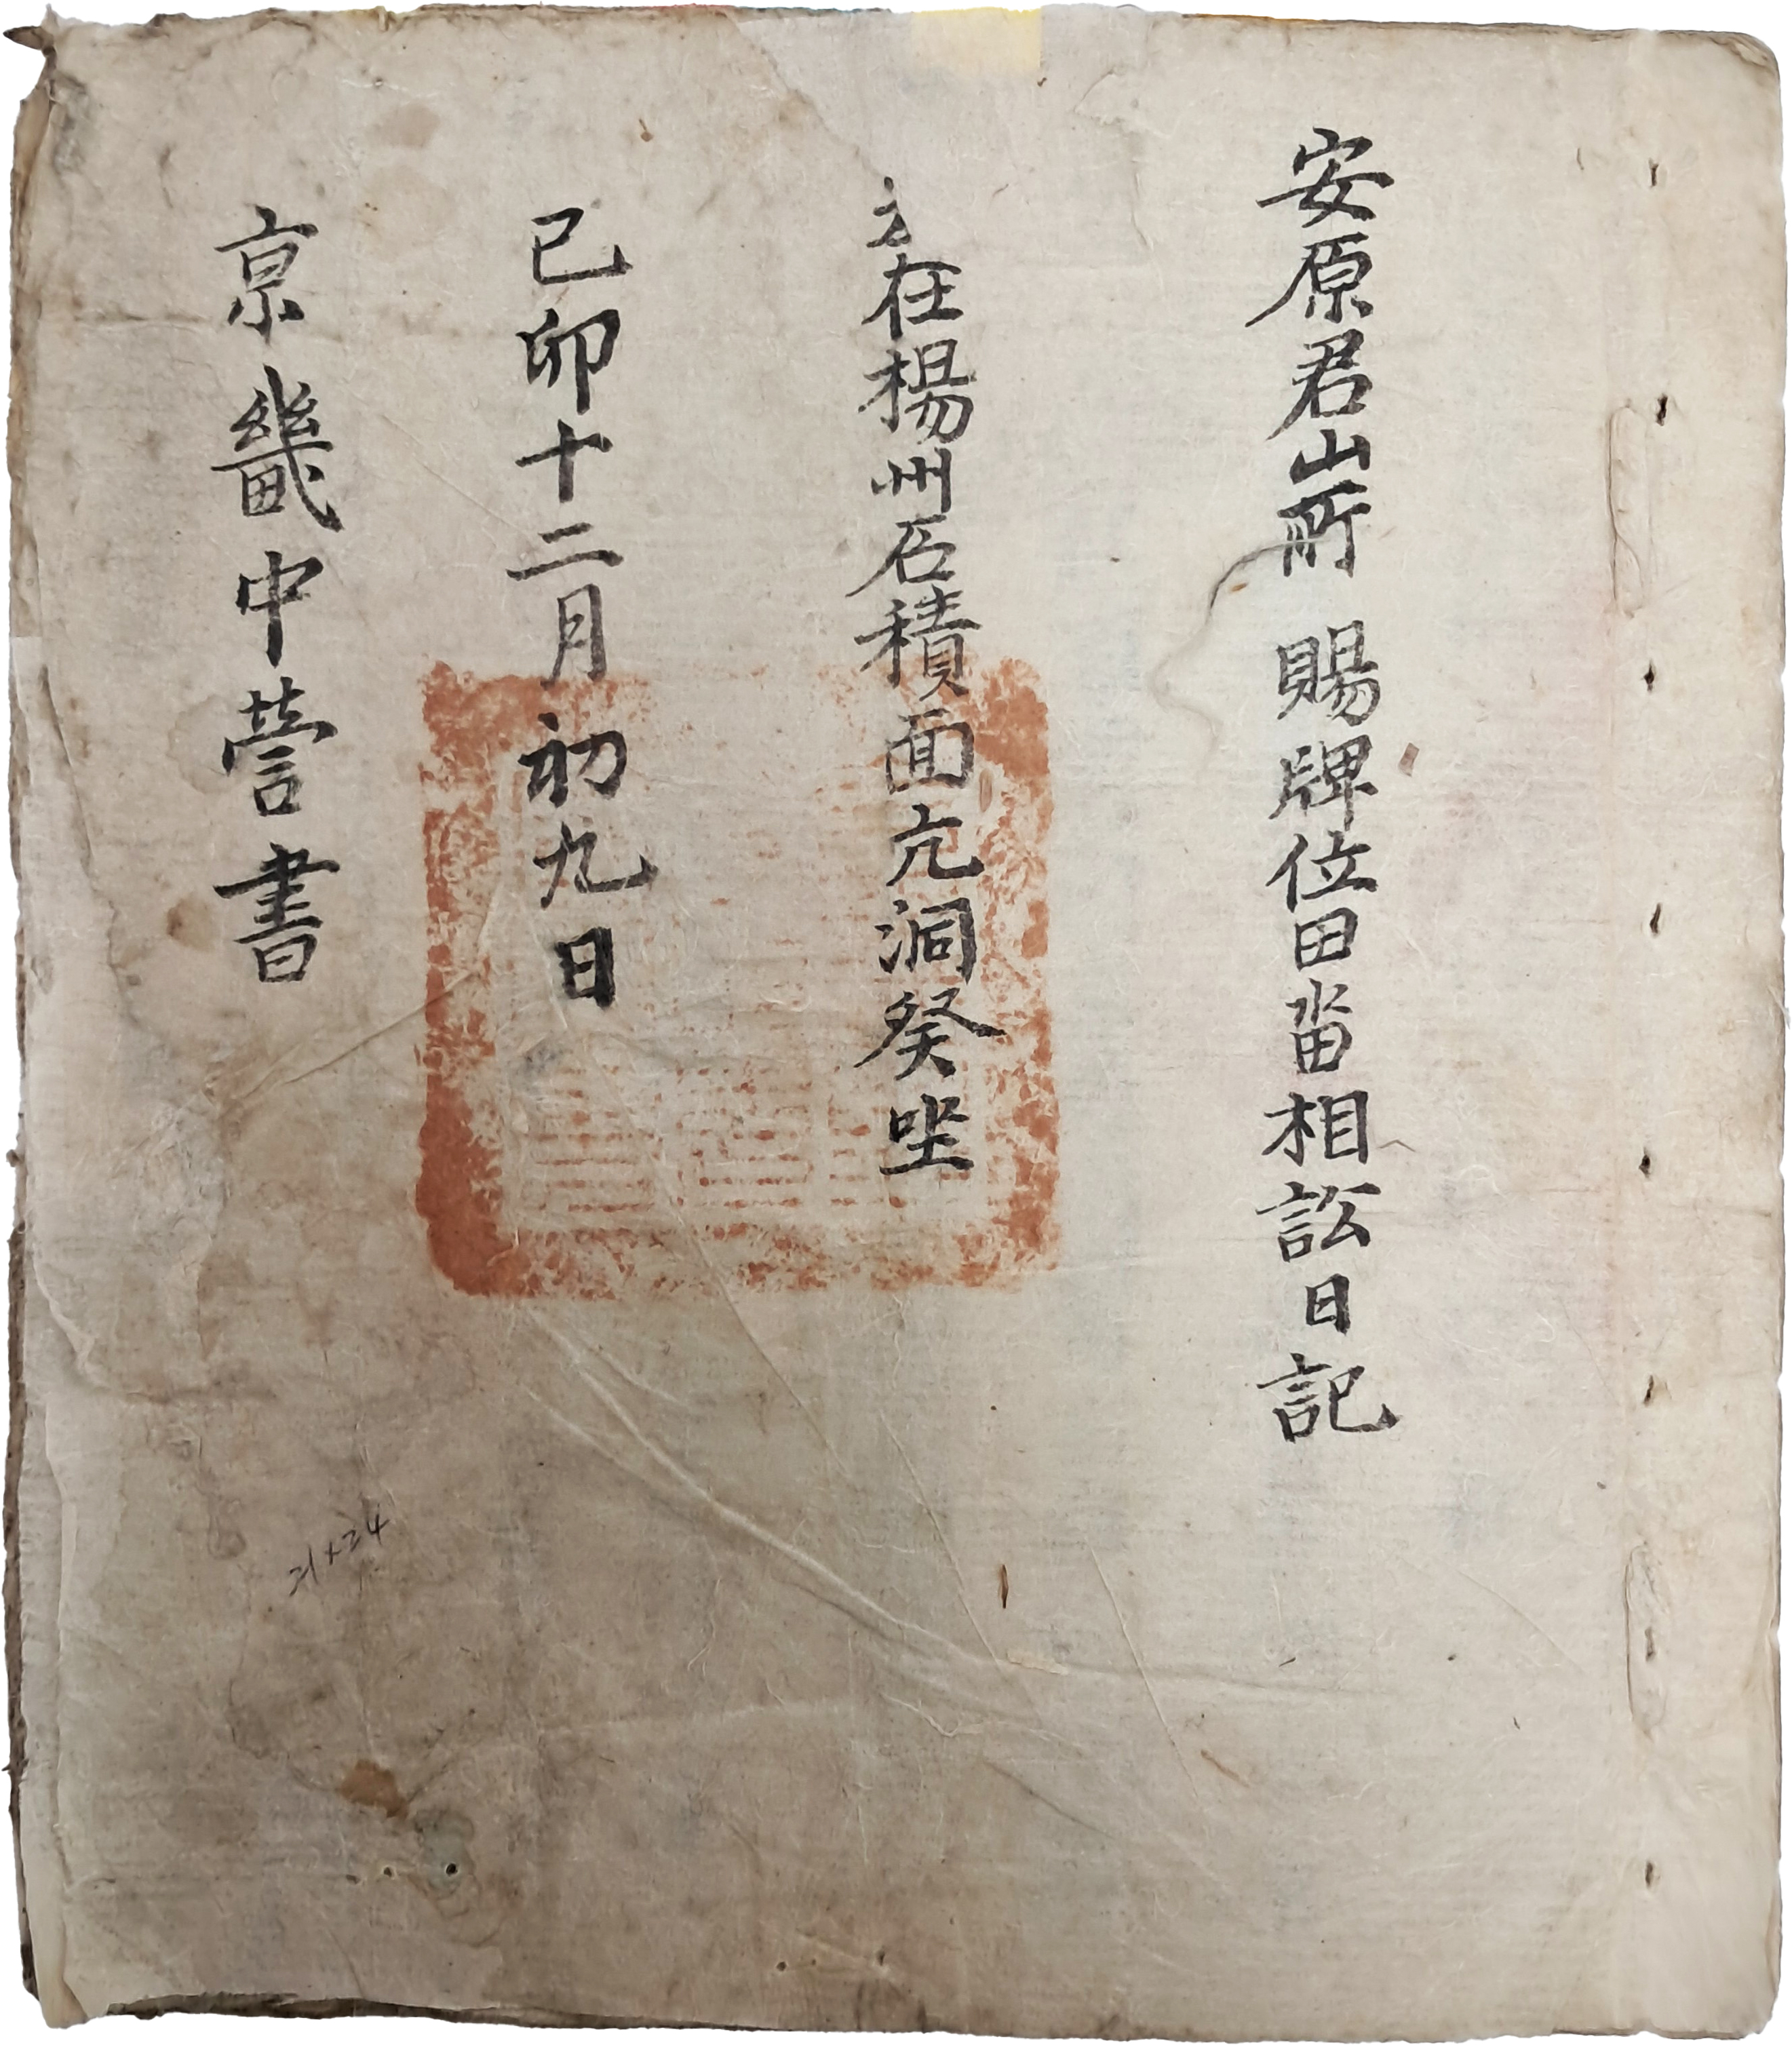 安原君山所 賜牌位田畓相訟日記
在楊州石積面亢洞癸坐
己卯十二月初九日
京畿中營書
21×24